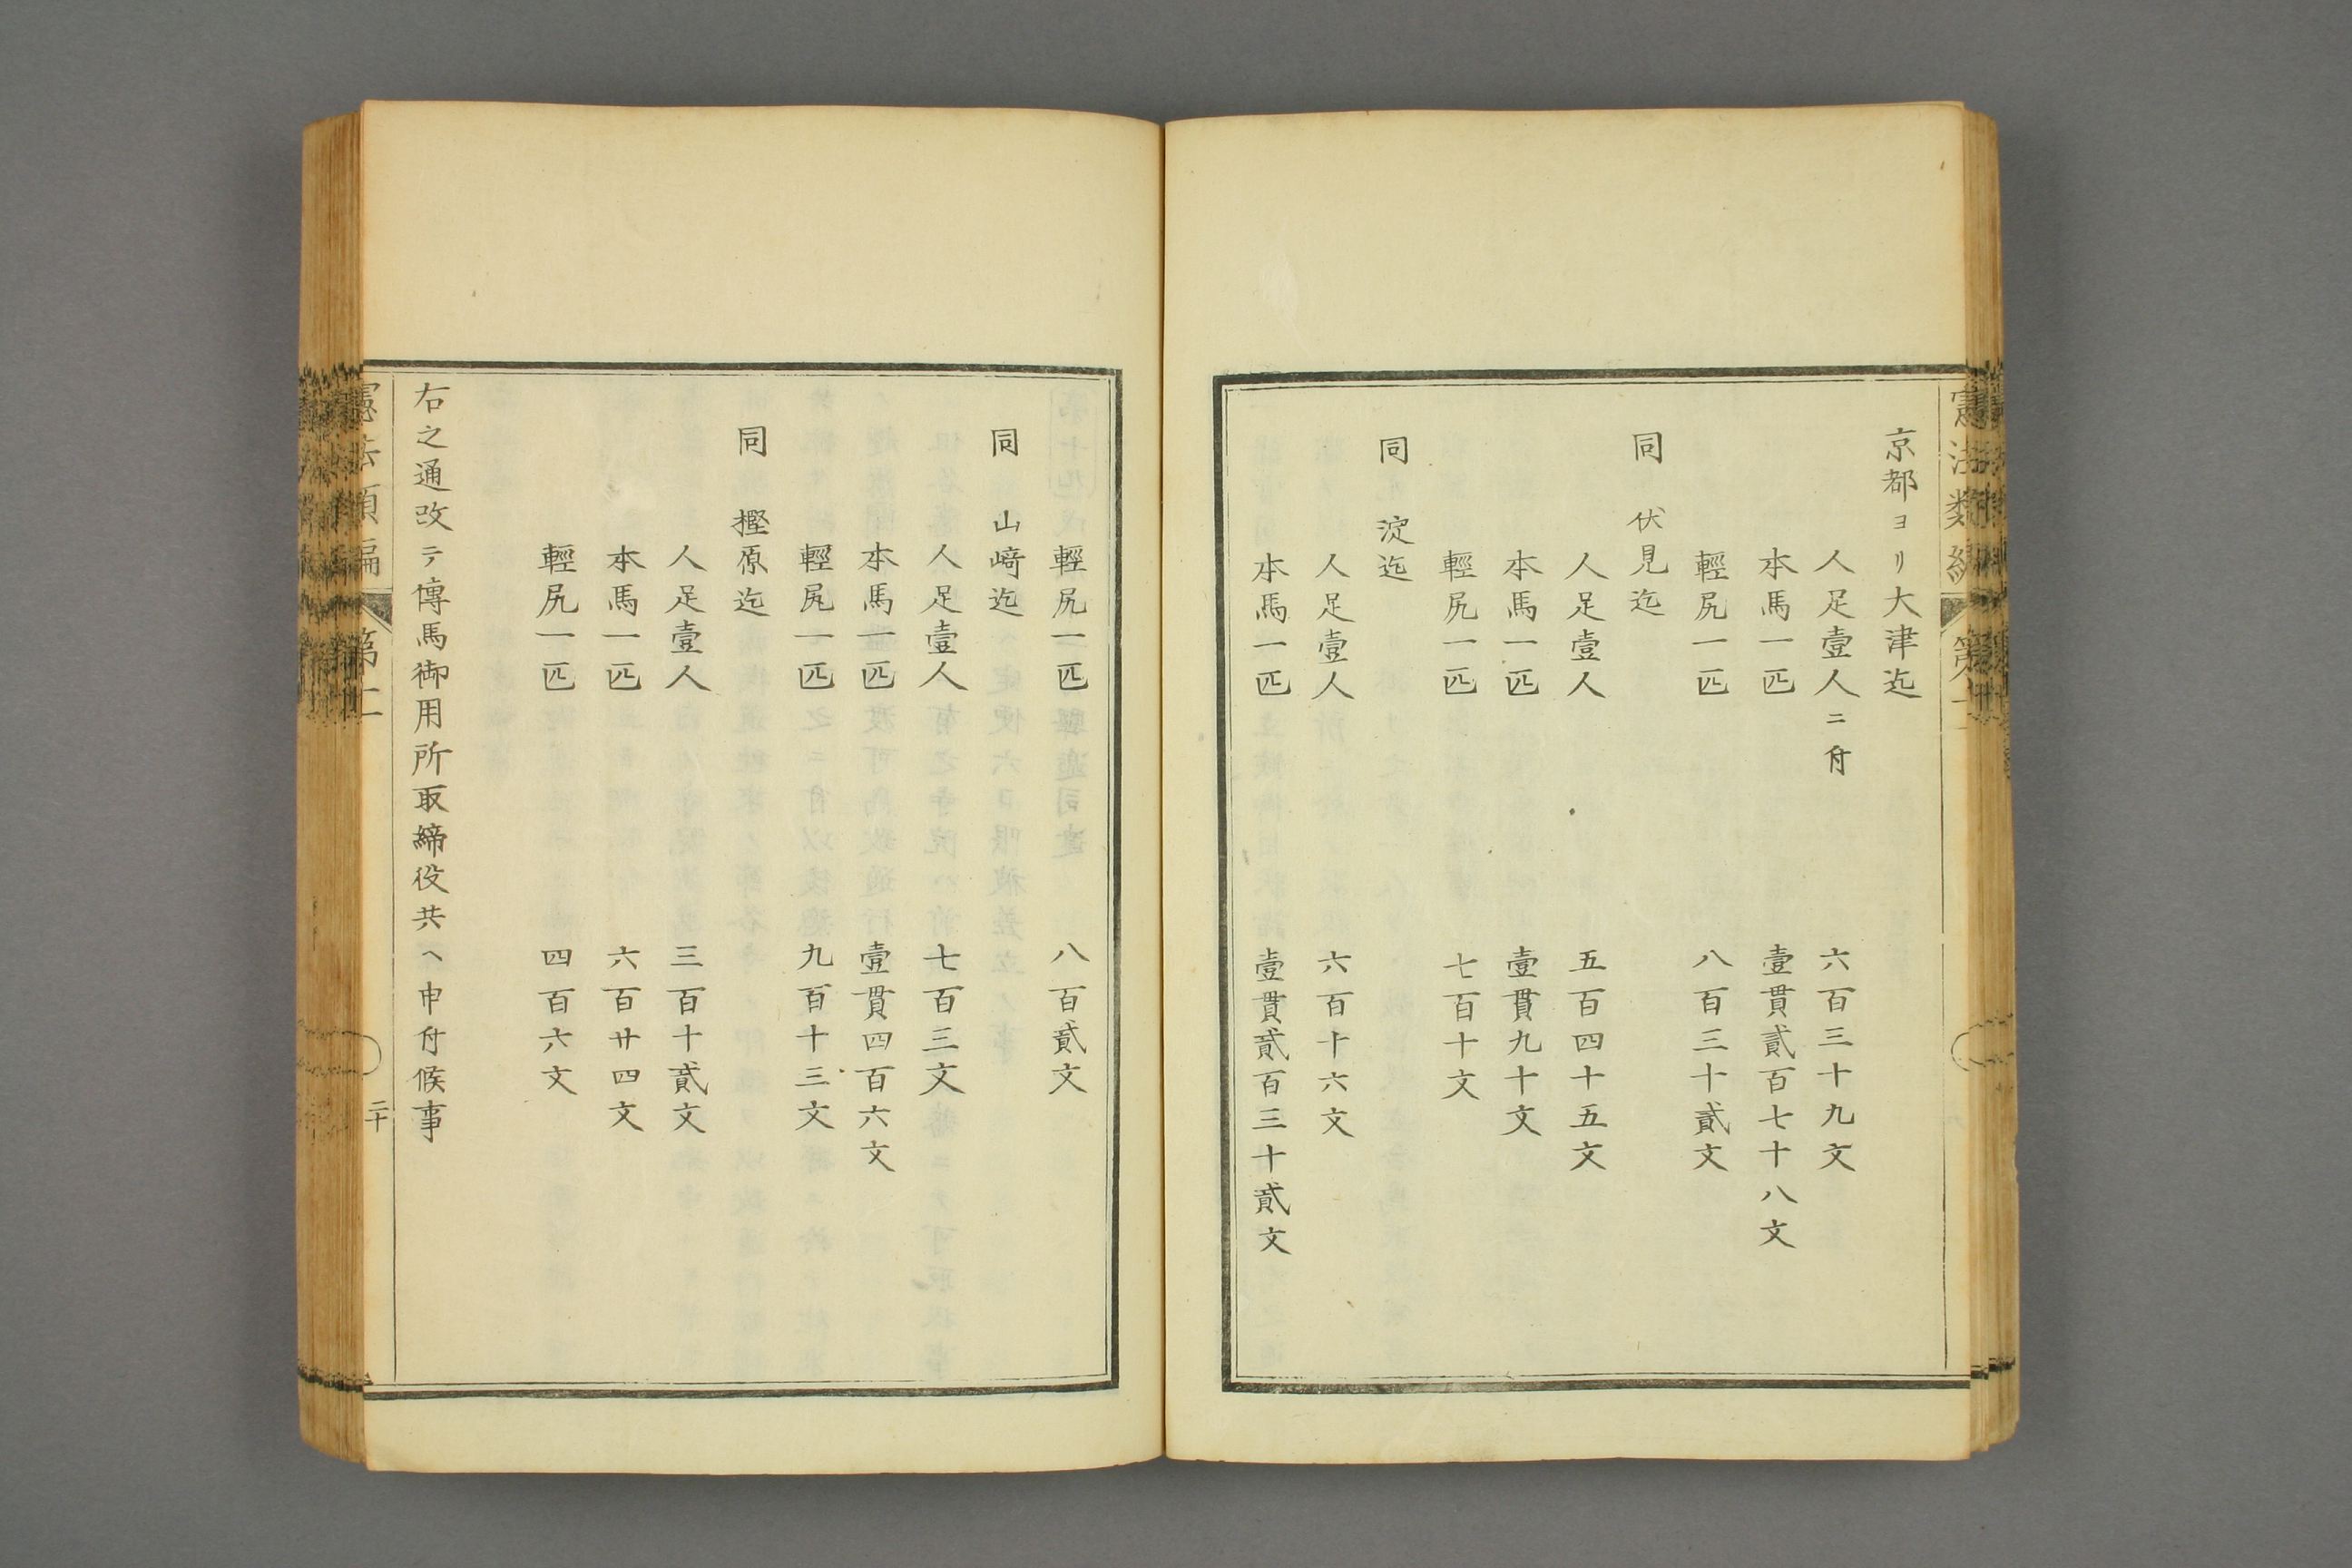 京都ヨリ大津迄
人足壹人ニ付 六百三十九文
本馬一匹 壹貫貳百七十八文
輕尻一匹 八百三十貳文
同 伏見迄
人足壹人 五百四十五文
本馬一匹 壹貫九十文
輕尻一匹 七百十文
同 淀迄
人足壹人 六百十六文
本馬一匹 壹貫貳百三十貳文
輕尻一匹 八百貳文
同 山崎迄
人足壹人 七百三文
本馬一匹 壹貫四百六文
輕尻一匹 九百十三文
同 樫原迄
人足壹人 三百十貳文
本馬一匹 六百廿四文
輕尻一匹 四百六文
右之通改テ傳馬御用所取締役共ヘ申付候事
憲法類編 第二
二十